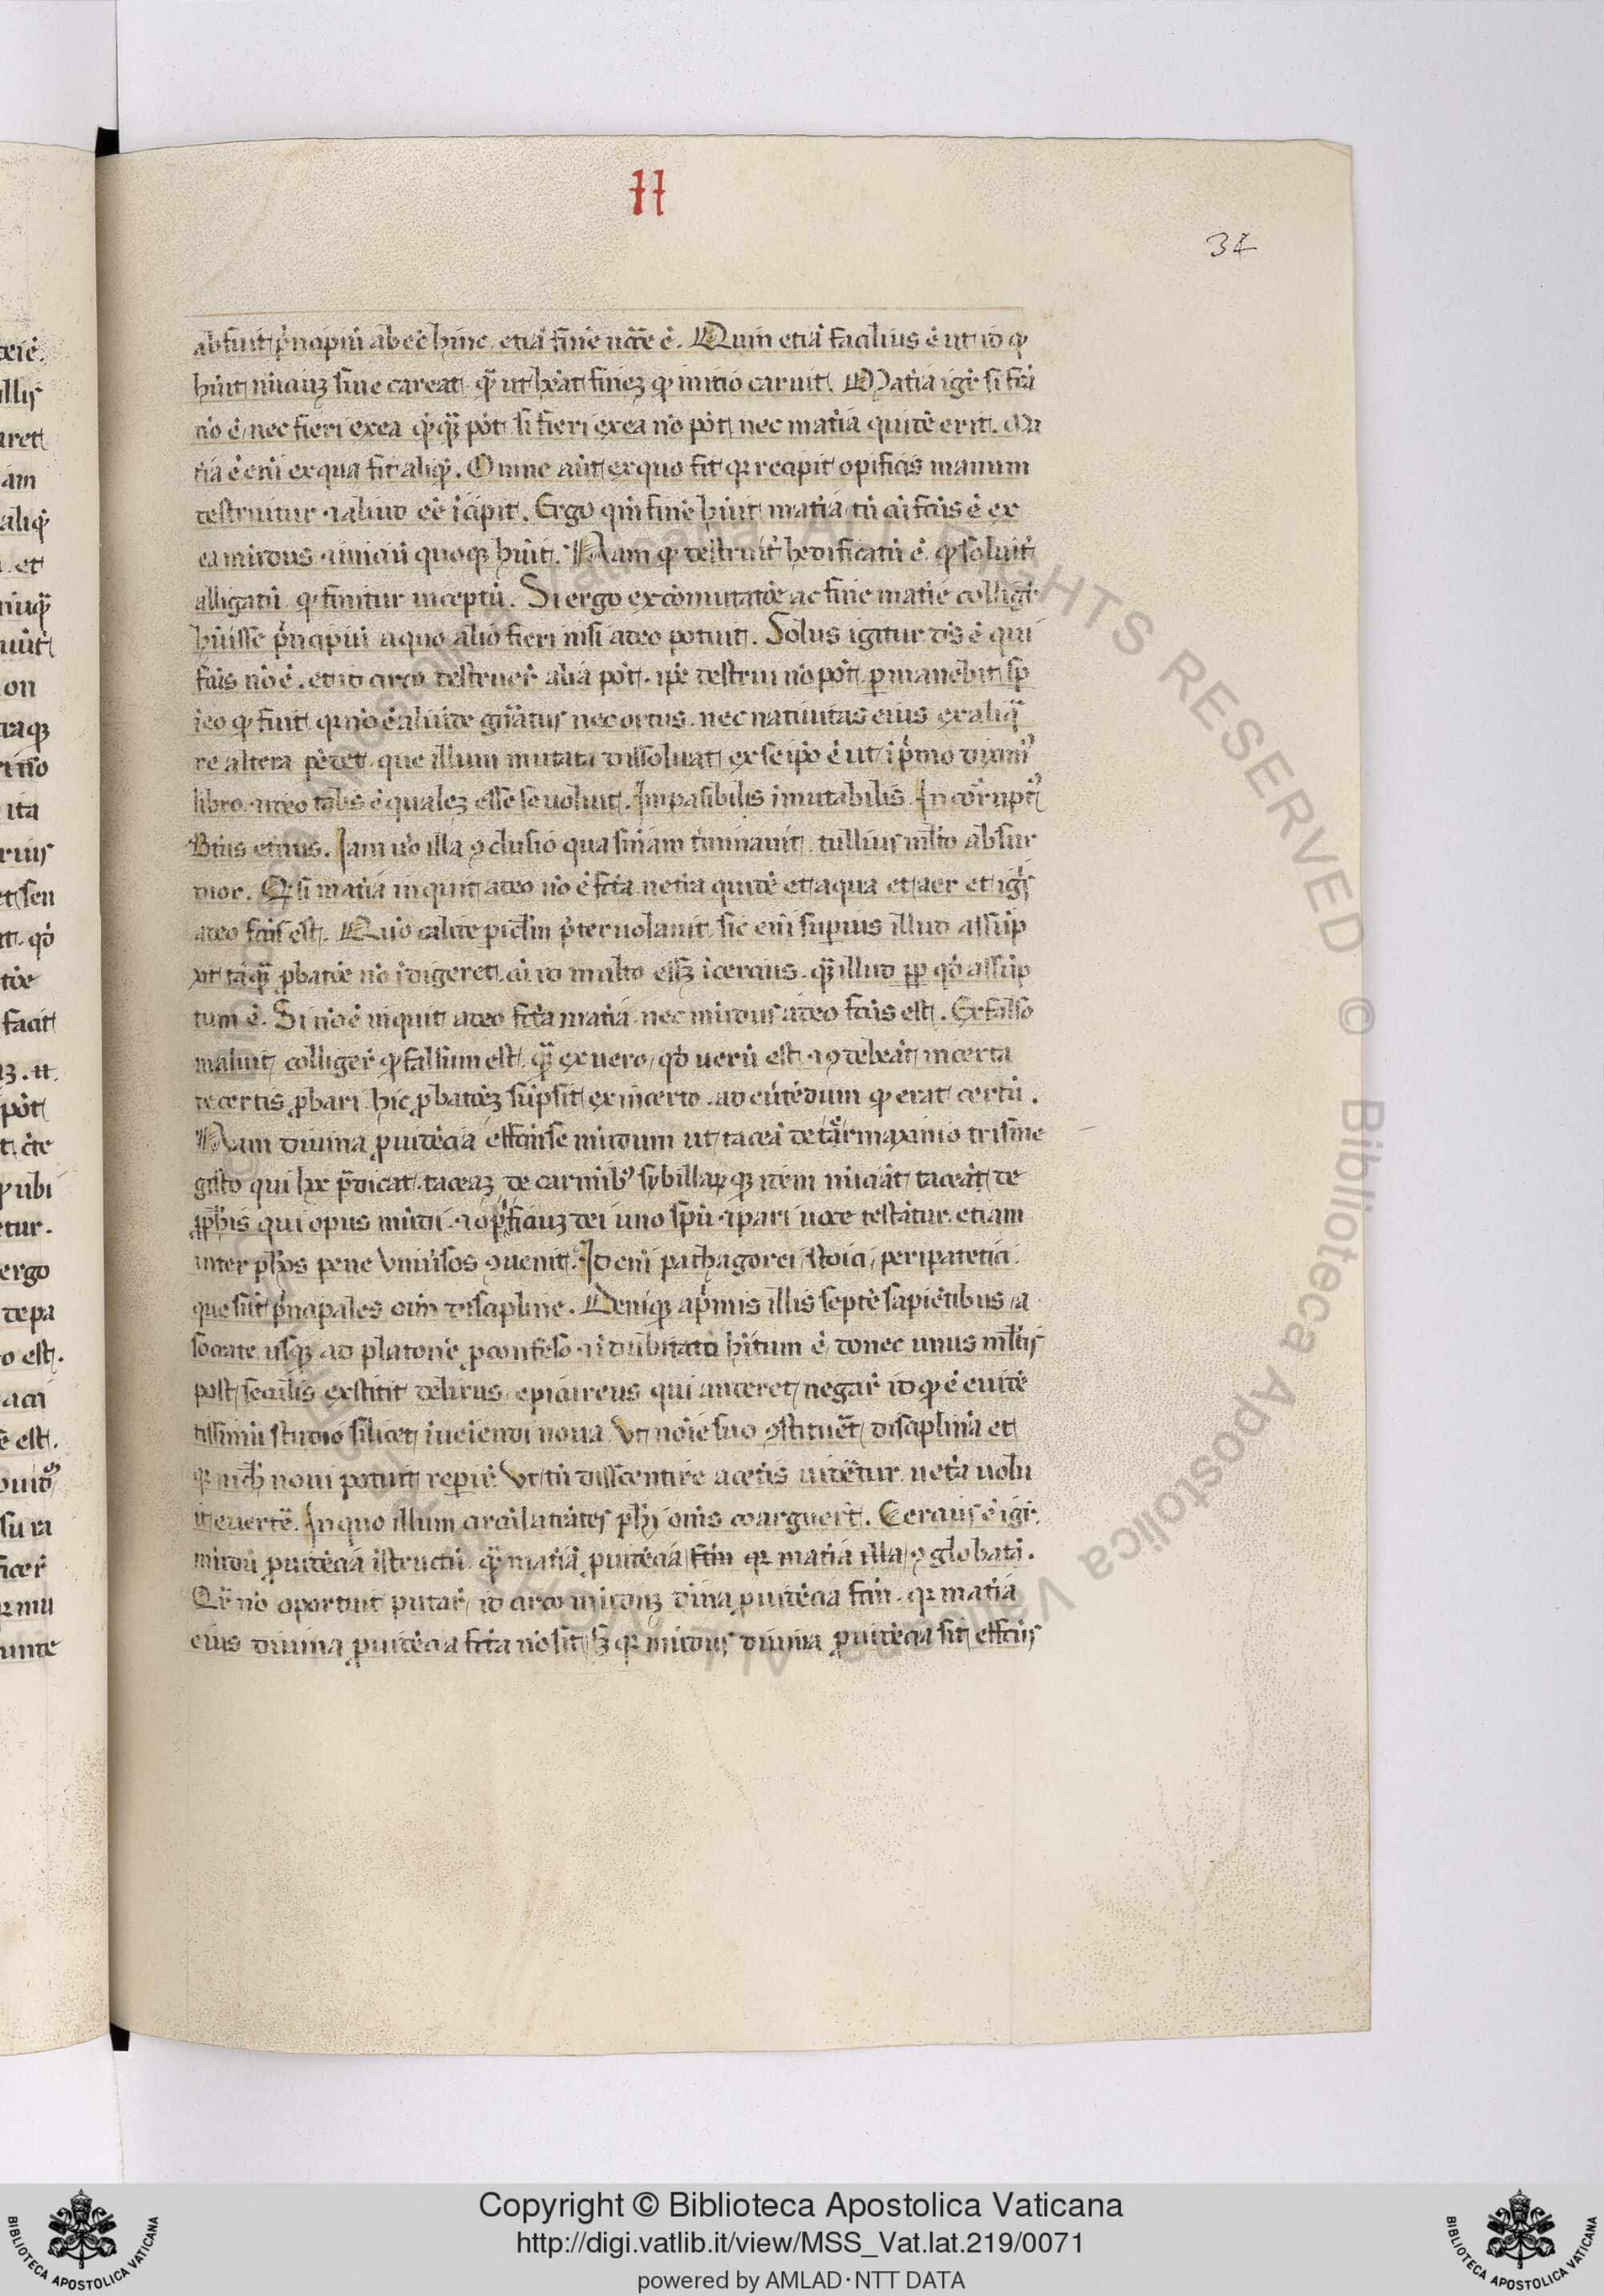 II
34
abfuit p̄ncipiū ab eē hinc etiā finē nccē ē. Quin etiā facilius ē ut id qᵈ
hūit inicium fine careat. q̄ ut hēat finem qᵈ initio caruit. Mat̄ia igr̄ si fc̄a
nō ē, nec fieri ex ea qᵈq̄ pōt. si fieri ex ea nō pōt, nec mat̄ia quidē erit. Ma
t̄ia ē eni ex qua fit aliqᵈ. Omne aūt ex quo fit qr recipit opificis manum
destruitur ⁊ aliud eē īcipit. Ergo qm̄ finē hūit mat̄ia tū cū fc̄us ē ex
ea mūdus ⁊ iniciū quoqꝫ hūit. Nam qᵈ destruit̄ hedificatū ē. qᵈ soluit̄
alligatū qᵈ finitur inceptū. Si ergo ex cōmutatōe ac fine mat̄ie colligit̄
hūisse p̄ncipiū a quo alio fieri nisi a deo potuit. Solus igitur d̄s ē qui
fc̄us nō ē. et id circo destruer̄ alia pōt. ip̄e destrui nō pōt. permanebit sp̄
ī eo qᵈ fuit qr nō ē aliunde gn̄atus nec ortus. nec natiuitas eius ex aliq̄
re altera pēdet que illum mutata dissoluat. ex seip̄o ē ut ī p̄mo diximꝰ
libro. ideo talis ē qualem esse se uoluit. Impasibilis īmutabilis. Incorruptꝰ
Btūs etn̄us. Iam uō illa ꝯclusio qua sn̄iam t̄minauit tullius ml̄to absur
dior. Qᵈ si mat̄ia inquit a deo nō ē fc̄a ne t̄ia quidē et aqua et aer et igīs
a deo fc̄us est. Quō calide pic̄lm p̄teruolauit. sic eni sup̄ius illud assūp
ut taq̄ ꝓbatōe nō īdigeret. cū id multo esset īcercius. q̄ illud ꝓp̄ qᵈ assūp
tum ē. Si nō ē inquit a deo fc̄a mat̄ia. nec mūdus a deo fc̄us est. Ex falso
maluit colliger̄ qᵈ falsum est. q̄ ex uero, qᵈ uerū est. ⁊ ꝯ debeāt incerta
de certis ꝓbari hic ꝓbatōem sūpsit ex incerto. ad eūtēdum qᵈ erat certū.
Nam diuina ꝓuidēcia effc̄m esse mūdum ut taceā de t̄rmaximo trisme
gisto qui hoc p̄dicat. taceam de carmībꝰ sybillaꝝ qꝫ idem nūciāt. taceāt de
ꝓph̄is qui opus mūdi ⁊ opīficium dei uno sp̄u ⁊ pari uoce testātur. etiam
inter ph̄os pene vniūsos ꝯuenit. Id eni pathagorei, stoici, peripatetici
que sūt p̄ncipales oīm discipline. Deniqꝫ a p̄mis illis septē sapiētibus, a
socrate usqꝫ ad platonē ꝓ confesso ⁊ īdubitato hītum ē, donec unus ml̄tis
post seculis exstitit delirus epicureus qui auderet negar̄ id qᵈ ē euidē
tissimū studio silicet īueiendi noua. Vt noīe suo ꝯstituēt disciplinā et
qr nich̄ noui potuit rep̄ire Vt tn̄ dissentire a cet̄is uidēr̄tur uet̄a uolu
it euert̄e. In quo illum circūlatrātes ph̄i om̄is coarguer̄t. Cercius ē igr̄.
mūdū ꝓuidēcia īstructū q̄ mat̄iā ꝓuidēcia fc̄am qr mat̄ia illa, ꝯglobatā.
Qr̄ nō oportuit putar̄, id circo mūdum dīna ꝓuidēcia fc̄m. qr mat̄ia
eius diuina ꝓuidēcia fc̄a nō sit, sꝫ qr mūdus diuina ꝓuidēcia sit effc̄us
Copyright © Biblioteca Apostolica Vaticana
http://digi.vatlib.it/view/MSS_Vat.lat.219/0071
powered by AMLAD·NTT DATA